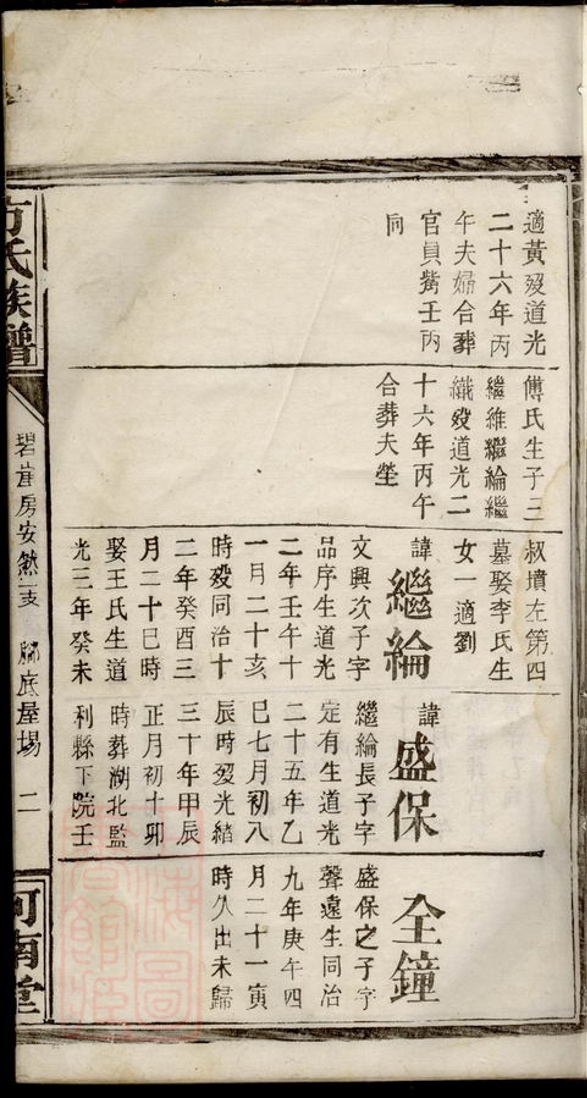 適黃歿道光
二十六年丙
午夫婦合葬
官員觜壬丙
向
傅氏生子三
繼維繼綸繼
纖歿道光二
十六年丙午
合葬夫塋
叔墳左第四
墓娶李氏生
女一適劉
諱繼綸
文興次子字
品序生道光
二年壬午十
一月二十亥
時歿同治十
二年癸酉三
月二十巳時
娶王氏生道
光三年癸未
諱盛保
繼綸長子字
定有生道光
二十五年乙
巳七月初八
辰時歿光緒
三十年甲辰
正月初十卯
時葬湖北監
利縣下院壬
全鐘
盛保之子字
聲遠生同治
九年庚午四
月二十一寅
時久出未歸
方氏族譜
碧首房安然支
底屋場
二
河南堂